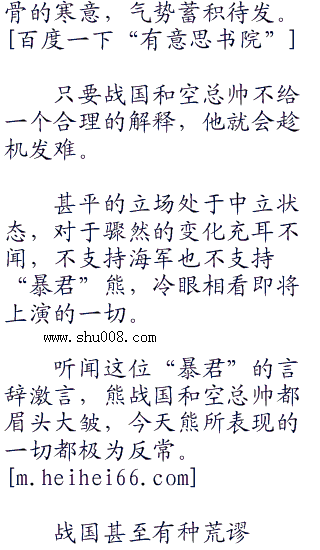 骨的寒意，气势蓄积待发。
[百度一下“有意思书院”]
只要战国和空总帅不给
一个合理的解释，他就会趁
机发难。
甚平的立场处于中立状
态，对于骤然的变化充耳不
闻，不支持海军也不支持
“暴君”熊，冷眼相看即将
上演的一切。
www.shu008.com
听闻这位“暴君”的言
辞激言，熊战国和空总帅都
眉头大皱，今天熊所表现的
一切都极为反常。
[m.heihei66.com]
战国甚至有种荒谬